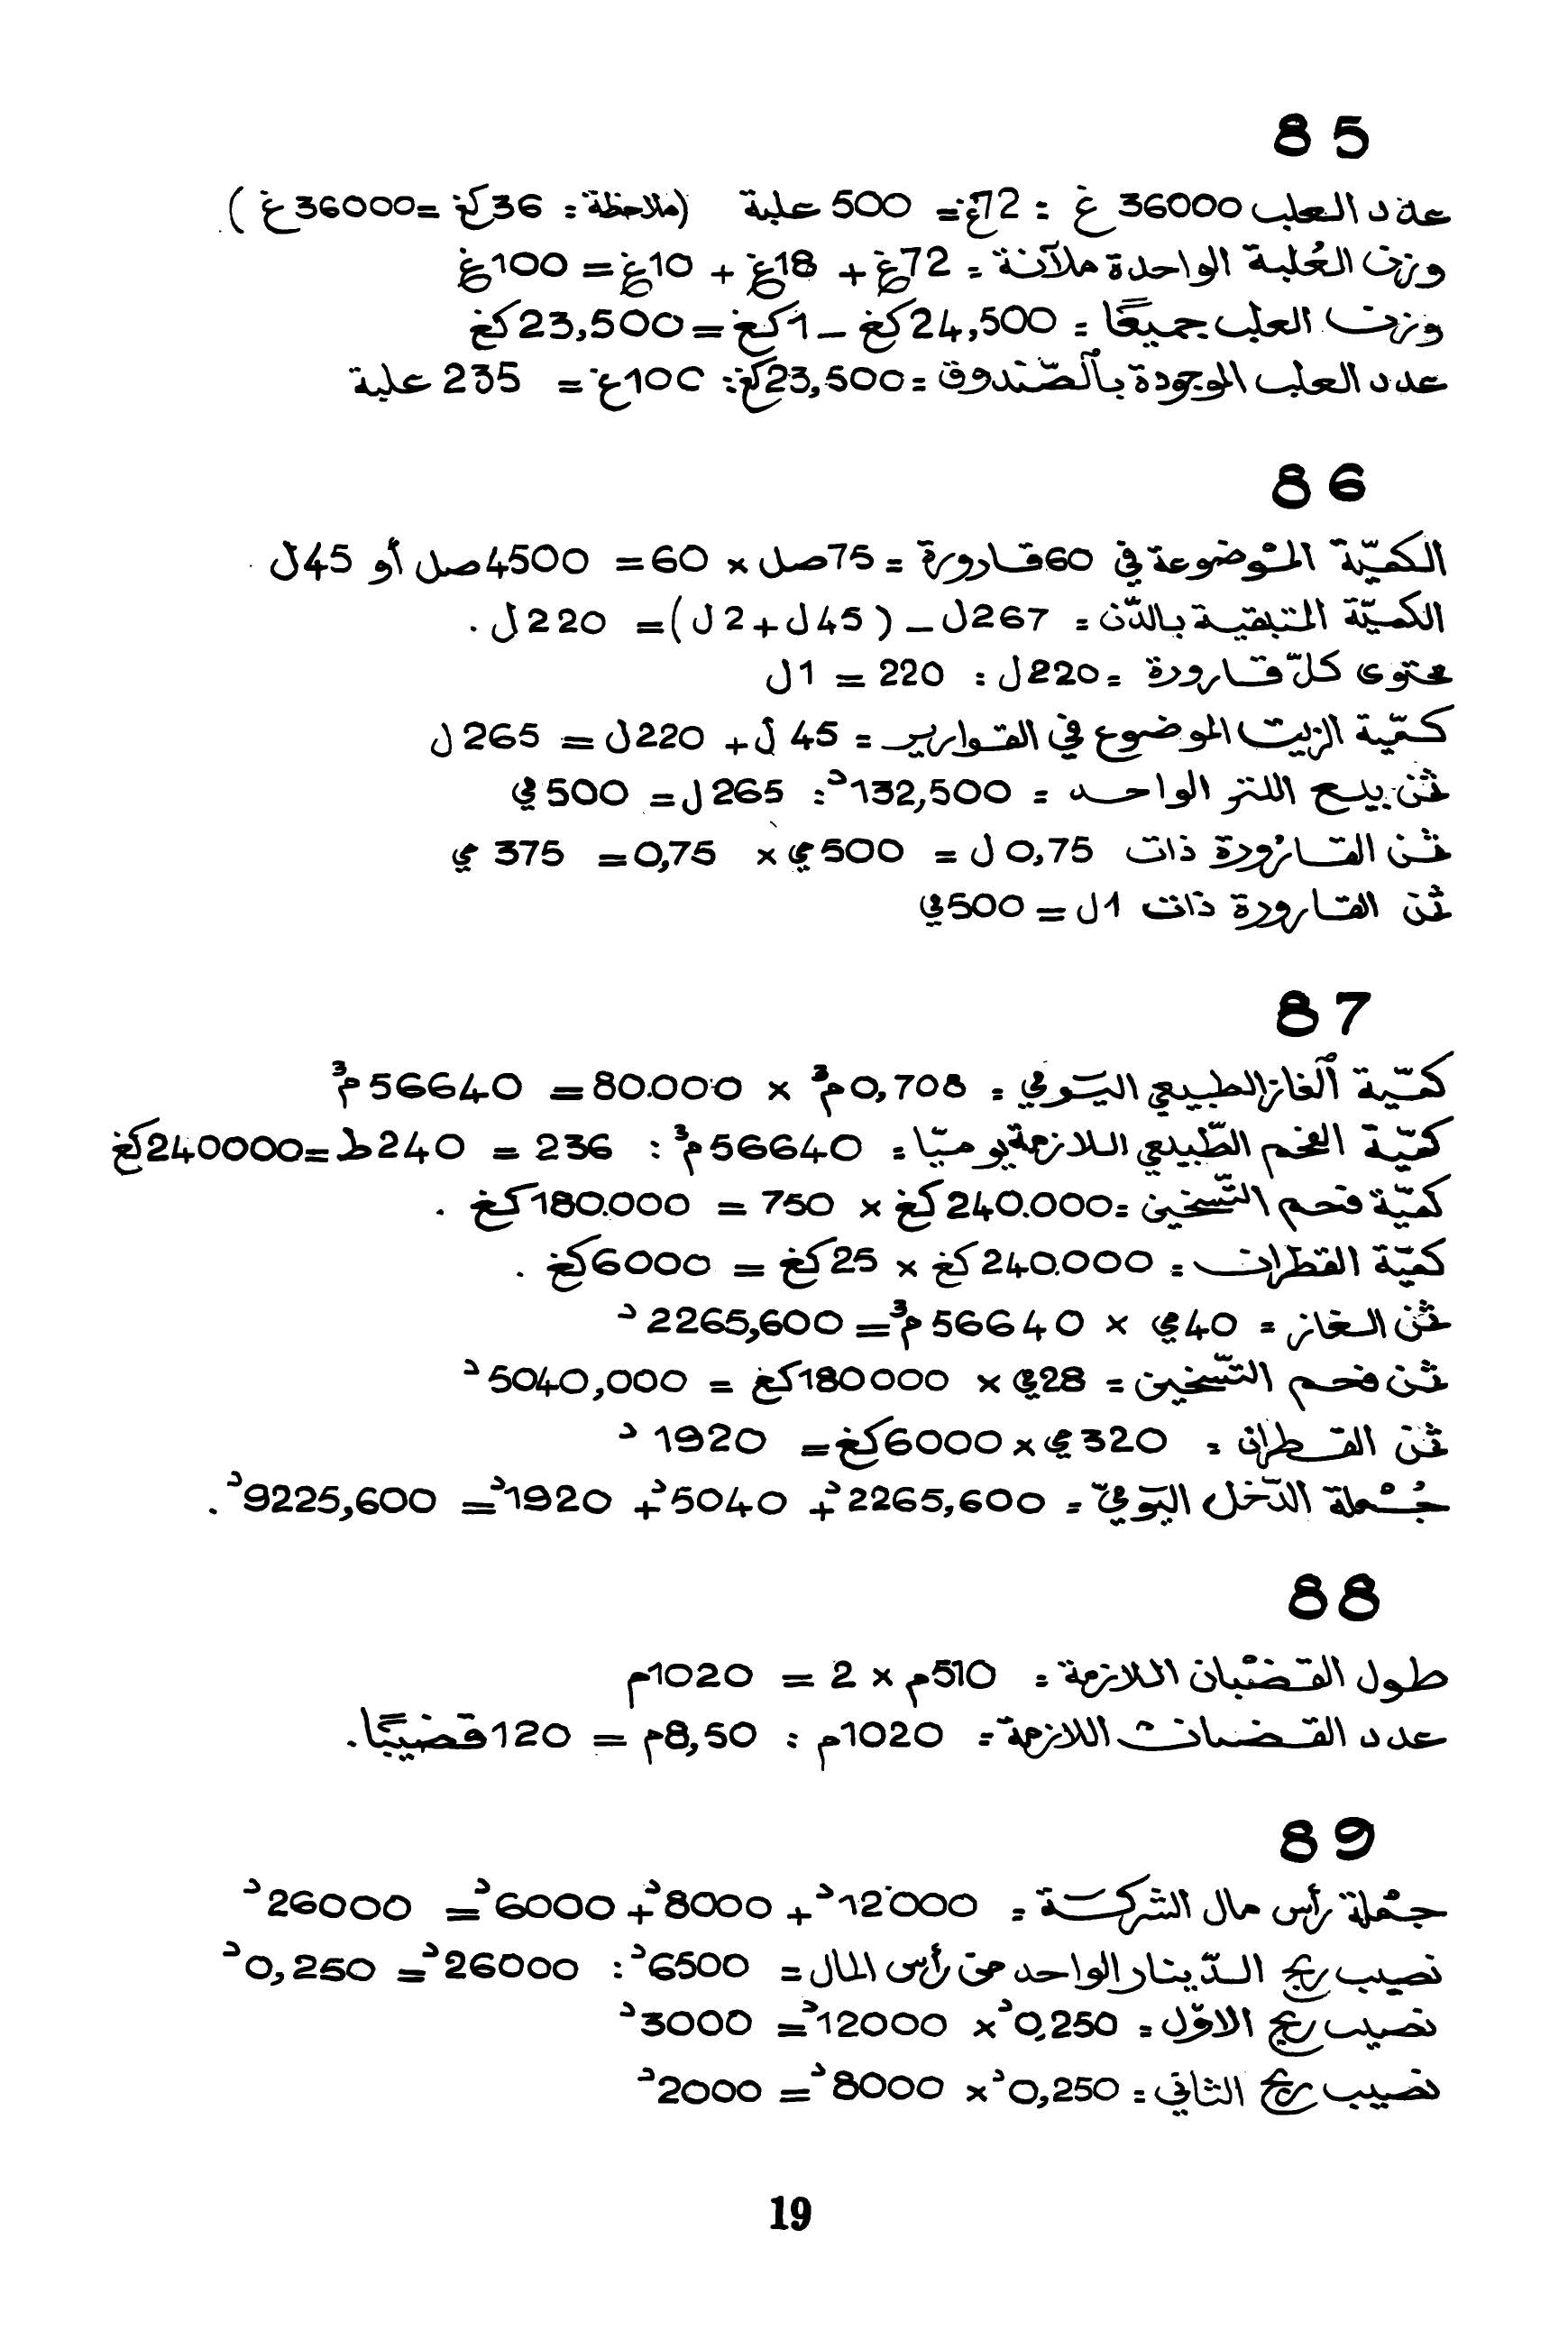 85
عدد العلب 36000 غ : 72غ = 500 علبة (ملاحظة: 36كغ = 36000غ).
وزن العُلبة الواحدة ملآنة = 72غ + 18غ + 10غ = 100غ
وزن العلب جميعًا = 24,500كغ _ 1كغ = 23,500كغ
عدد العلب الموجودة بالصّندوق = 23,500كغ : 100غ = 235 علبة
86
الكميّة الموضوعة في 60 قارورة = 75صل × 60 = 4500صل أو 45ل.
الكميّة المتبقية بالدّن = 267ل _ (45ل + 2ل) = 220ل.
محتوى كلّ قارورة = 220ل : 220 = 1ل
كميّة الزيت الموضوع في القوارير = 45ل + 220ل = 265ل
ثمن بيع اللتر الواحد = 132,500د : 265ل = 500مي
ثمن القارورة ذات 0,75ل = 500مي × 0,75 = 375مي
ثمن القارورة ذات 1ل = 500مي
87
كميّة الغاز الطبيعي اليومي = 0,708م³ × 80.000 = 56640م³
كميّة الفحم الطّبيعي اللازمة يوميّا = 56640م³ : 236 = 240ط = 240000كغ
كميّة فحم التّسخين = 240.000كغ × 750 = 180.000كغ.
كميّة القطران = 240.000كغ × 25كغ = 6000كغ.
ثمن الغاز = 40مي × 56640م³ = 2265,600د
ثمن فحم التّسخين = 28مي × 180000كغ = 5040,000د
ثمن القطران = 320مي × 6000كغ = 1920د
جُملة الدّخل اليوميّ = 2265,600د + 5040د + 1920د = 9225,600د.
88
طول القضبان اللازمة = 510م × 2 = 1020م
عدد القضبان اللازمة = 1020م : 8,50م = 120 قضيبًا.
89
جملة رأس مال الشركة = 12000د + 8000د + 6000د = 26000د
نصيب ربح الدّينار الواحد من رأس المال = 6500د : 26000د = 0,250د
نصيب ربح الاوّل = 0,250د × 12000د = 3000د
نصيب ربح الثاني = 0,250د × 8000د = 2000د
19